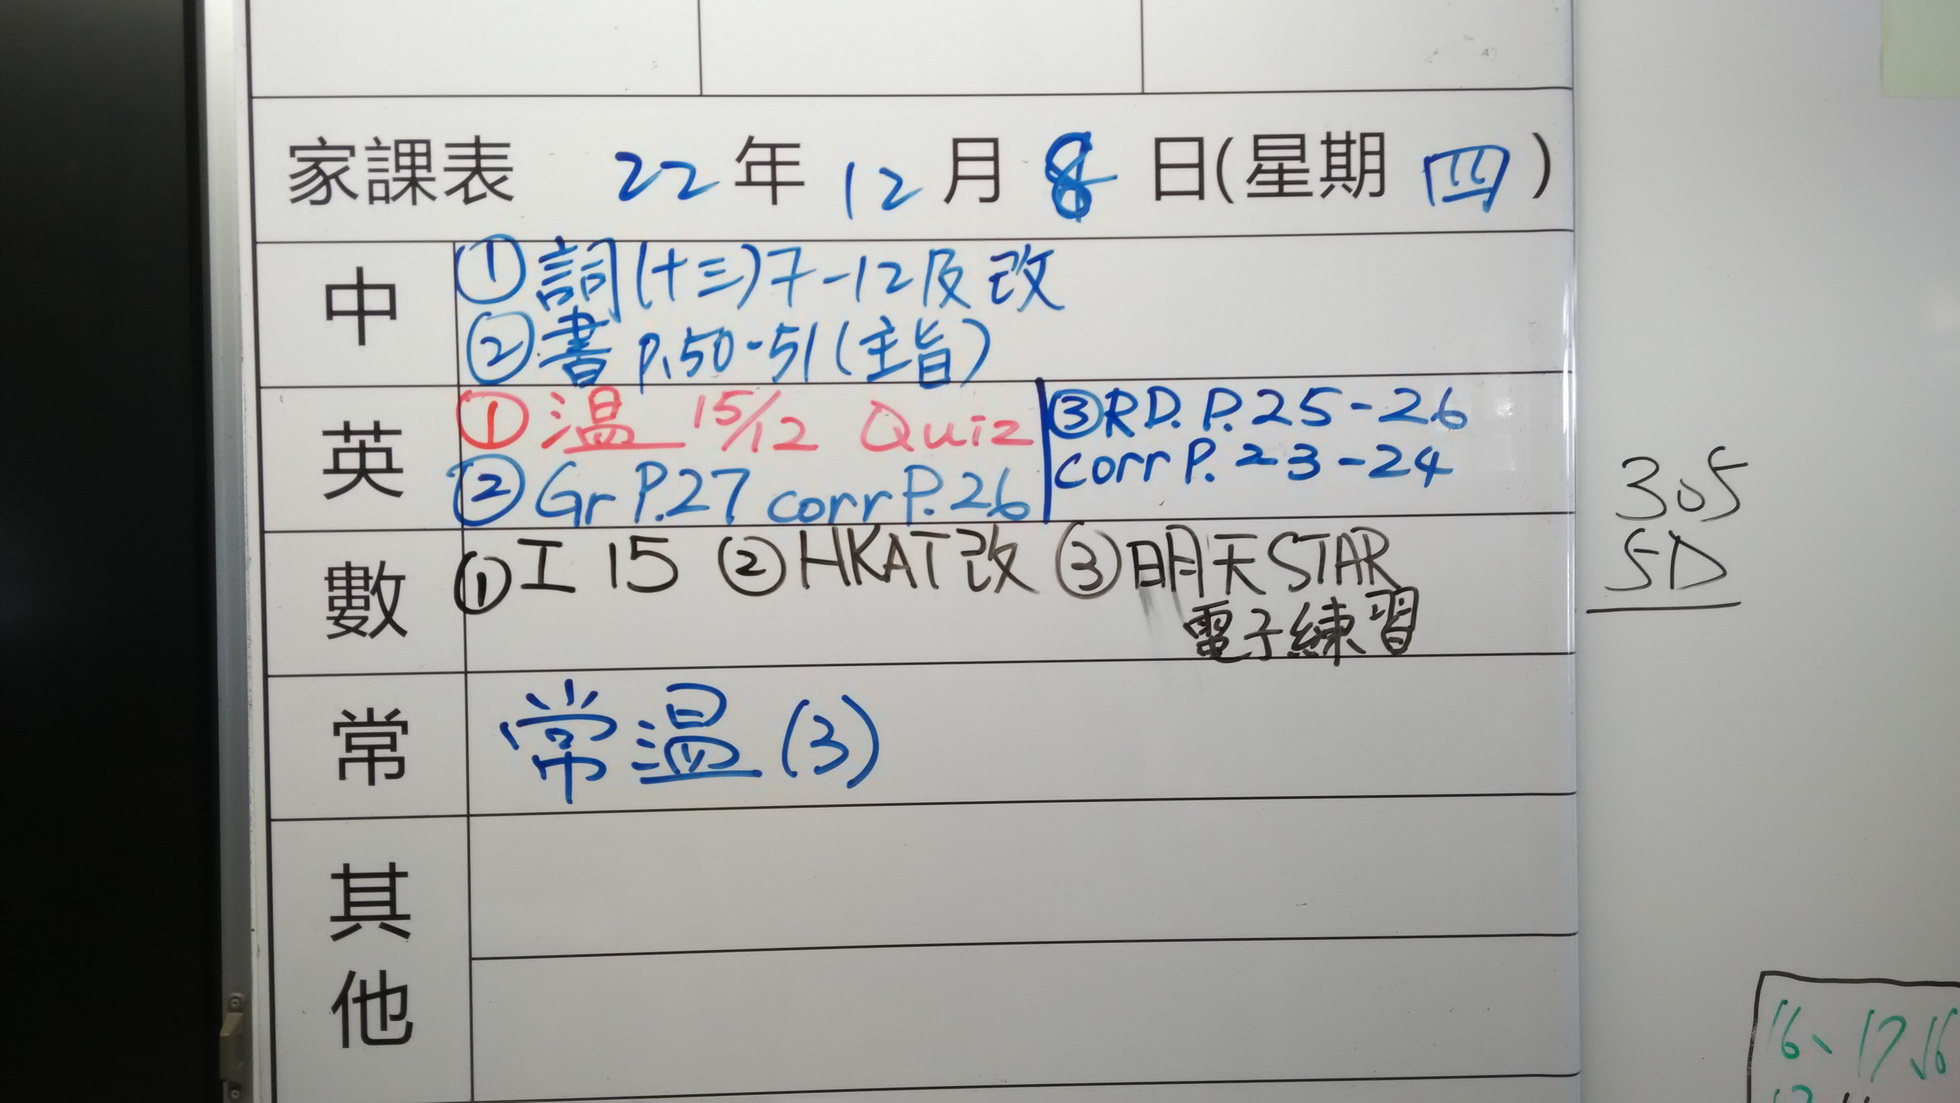 家課表 22年12月8日(星期四)
中
①詞(十三)7-12及改
②書 p.50-51(主旨)
英
①温 15/12 Quiz
②Gr P.27 corr P.26
③RD. P.25-26
corr P.23-24
數
①工15 ②HKAT改 ③明天STAR
電子練習
常
常温(3)
其他
305
5D
16、17